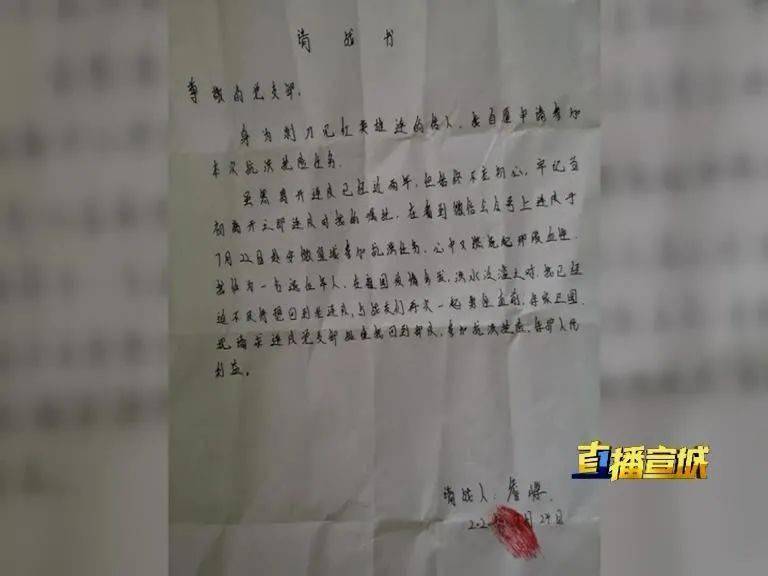 请战书
尊敬的党支部:
身为刺刀见红英雄连的传人,我自愿申请参加
本次抗洪抢险任务。
虽然离开连队已经近两年,但始终不忘初心,牢记当
初离开之即连队对我的嘱托,在看到微信公众号上连队于
7月22日赴宁微堡垸参加抗洪任务,心中又燃起起那股血性,
我作为一名退伍军人,在祖国疫情多发,洪水泛滥之时,我已经
迫不及待想回到老连队,与战友们再次一起勇往直前,保家卫国
现请求连队党支部批准我回到部队,参加抗洪抢险,保护人民
利益。
请战人:
月29日
直播宣城